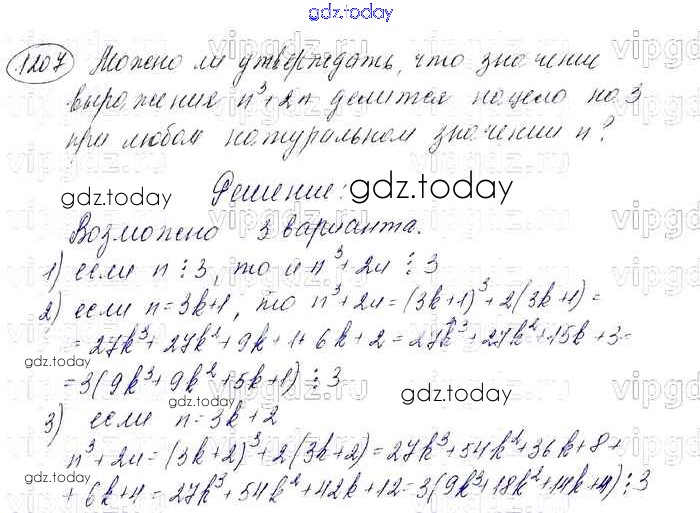 gdz.today
1207 Можно ли утверждать, что значение
выражения n³+2n делится нацело на 3
при любом натуральном значении n?
gdz.today
gdz.today
Решение:
Возможно 3 варианта.
1) если n ⋮ 3, то и n³+2n ⋮ 3
2) если n=3k+1, то n³+2n=(3k+1)³+2(3k+1)=
=27k³+27k²+9k+1+6k+2=27k³+27k²+15k+3=
gdz.today
=3(9k³+9k²+5k+1) ⋮ 3
gdz.today
gdz.today
3) если n=3k+2
n³+2n=(3k+2)³+2(3k+2)=27k³+54k²+36k+8+
gdz.today
+6k+4=27k³+54k²+42k+12=3(9k³+18k²+14k+4) ⋮ 3